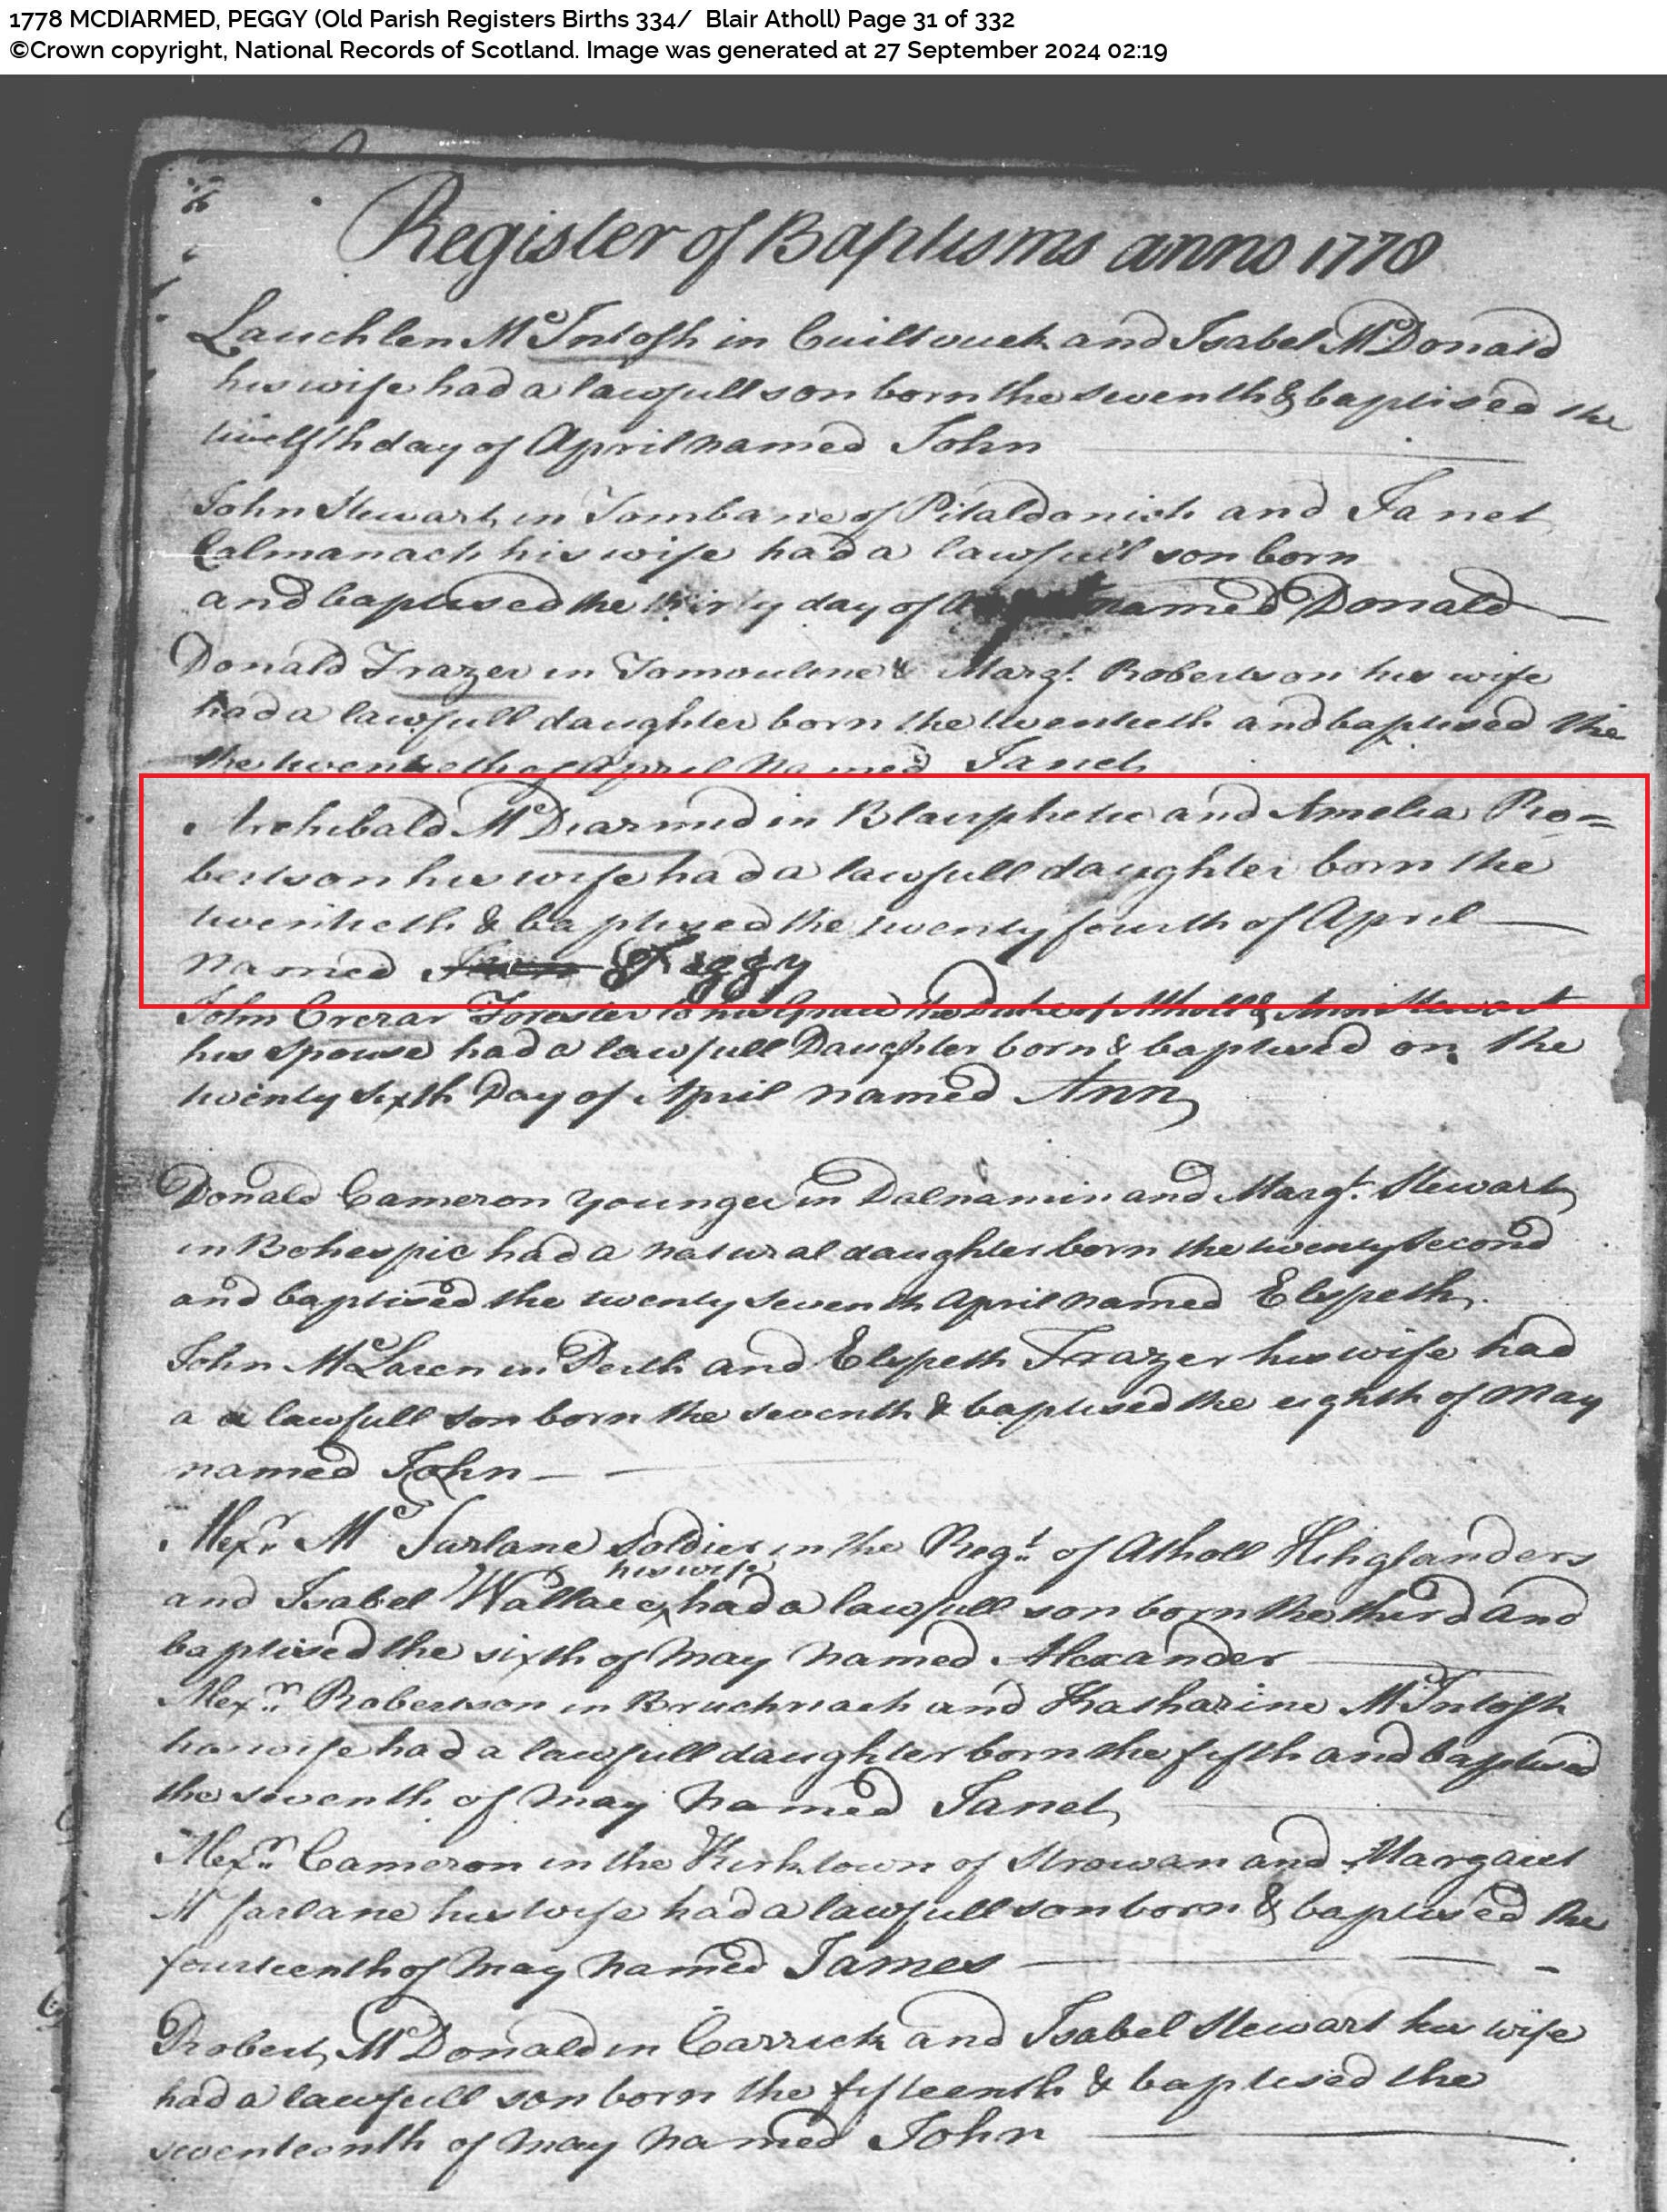 1778 MCDIARMED, PEGGY (Old Parish Registers Births 334/ Blair Atholl) Page 31 of 332
©Crown copyright, National Records of Scotland. Image was generated at 27 September 2024 02:19
Register of Baptisms anno 1778
Lauchlen McIntosh in and Isabel McDonald
his wife had a lawfull son born the seventh & baptised the
twelfth day of April named John
John Stewart in Tombane of Pitaldonich and Janet
Calmanach his wife had a lawfull son born
and baptised the day of named Donald
Donald Frazer in & Margt. Robertson his wife
had a lawfull daughter born the twentieth and baptised the
the twentieth of April named Janet
Archibald McDiarmid in and Amelia Ro=
bertson his wife had a lawfull daughter born the
twentieth & baptised the twenty fourth of April
named Peggy
John Crerar Forester to his Grace the Duke of Atholl & Ann Stewart
his Spouse had a lawfull Daughter born & baptised on the
twenty sixth Day of April named Ann
Donald Cameron younger in Dalnamin and Margt. Stewart
in Bohespic had a natural daughter born the twenty second
and baptised the twenty seventh April named Elspeth
John McLaren in Perth and Elspeth Frazer his wife had
a a lawfull son born the seventh & baptised the eighth of May
named John
Alexr. McFarlane Soldier in the Regt. of Atholl Hihglanders
his wife
and Isabel Wallace ^ had a lawfull son born the third and
baptised the sixth of May named Alexander
Alexr. Robertson in and Katharine McIntosh
his wife had a lawfull daughter born the fifth and baptised
the seventh of May named Janet
Alexr. Cameron in the Kirktown of Strowan and Margaret
McFarlane his wife had a lawfull son born & baptised the
fourteenth of May named James
Robert McDonald in Carrick and Isabel Stewart his wife
had a lawfull son born the fifteenth & baptised the
seventeenth of May named John